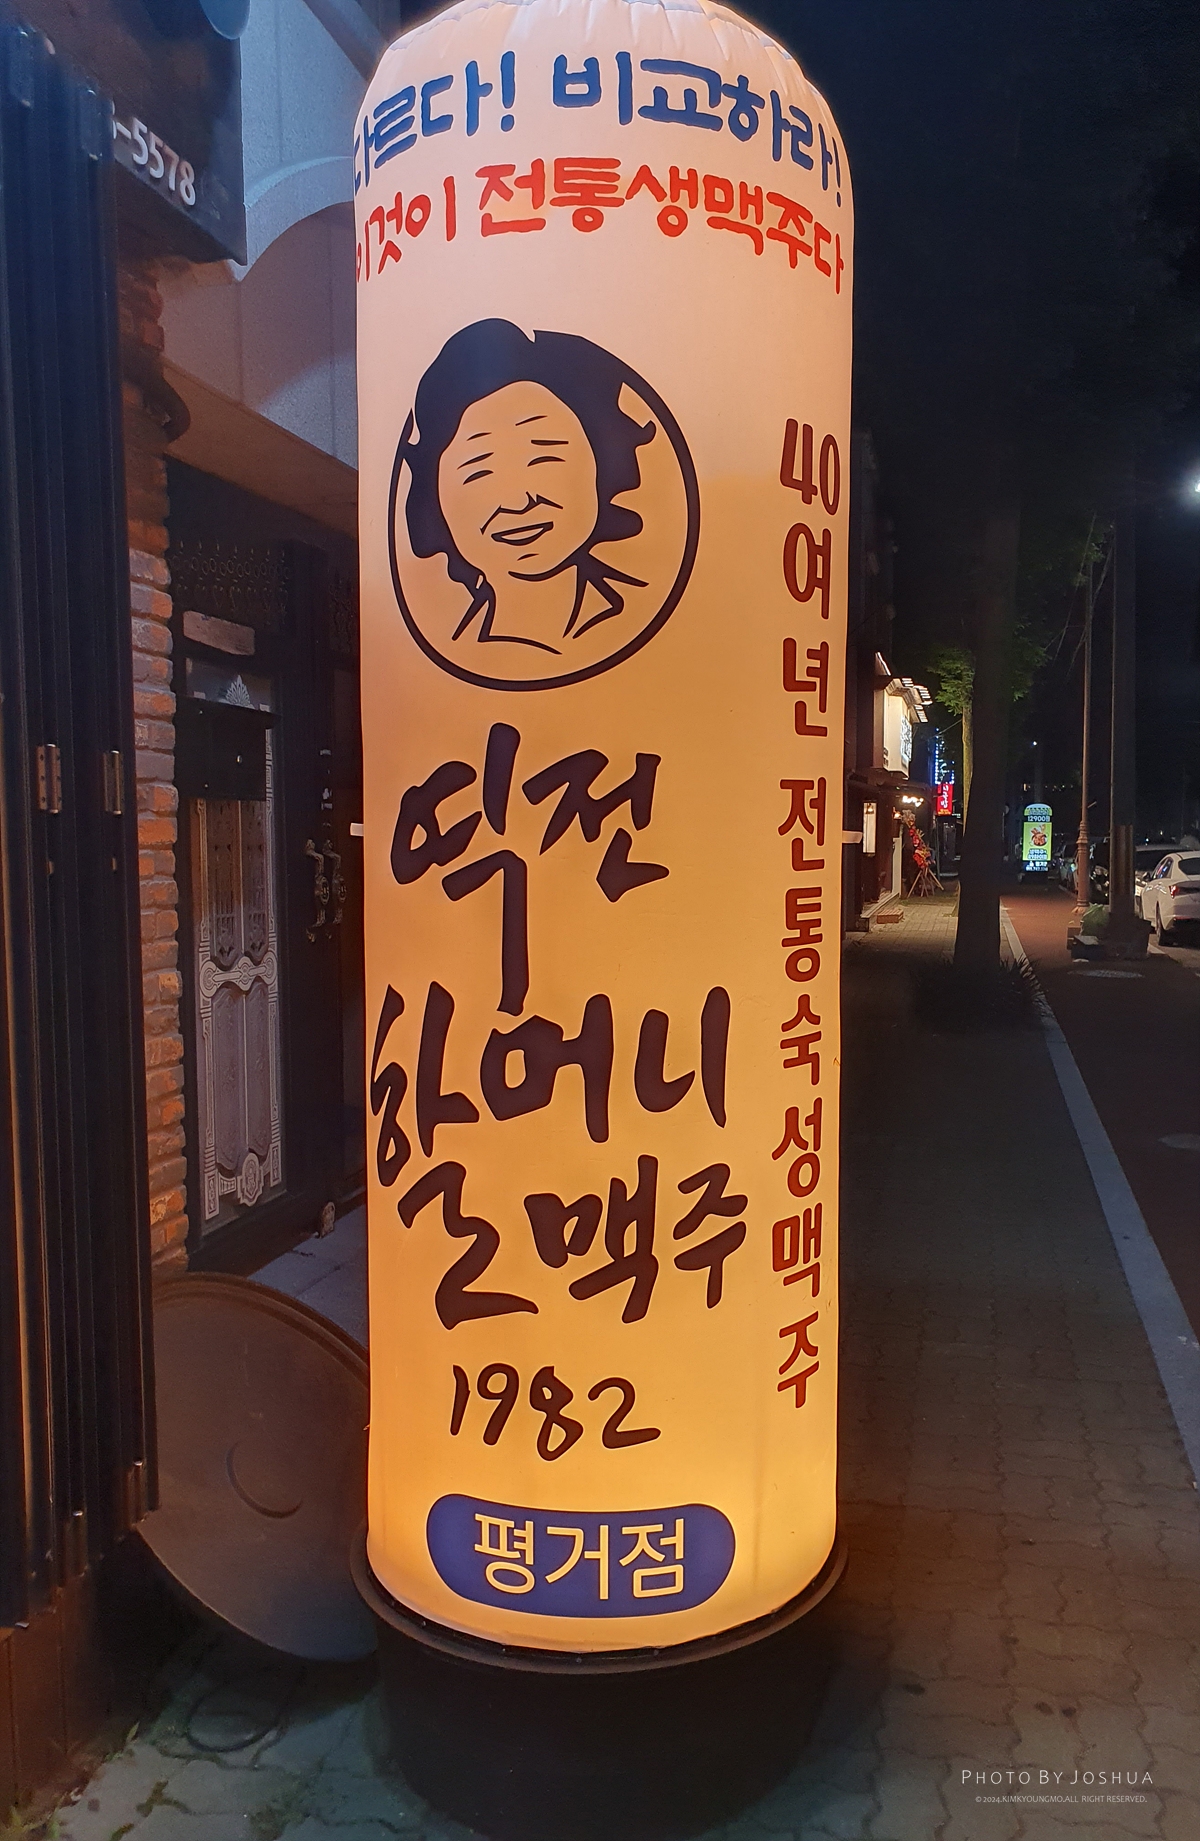 다르다! 비교하라!
이것이 전통생맥주다
40여년 전통숙성맥주
역전
할머니
맥주
1982
평거점
-5578
12900원
PHOTO BY JOSHUA
©2024.KIMKYOUNGMO.ALL RIGHT RESERVED.